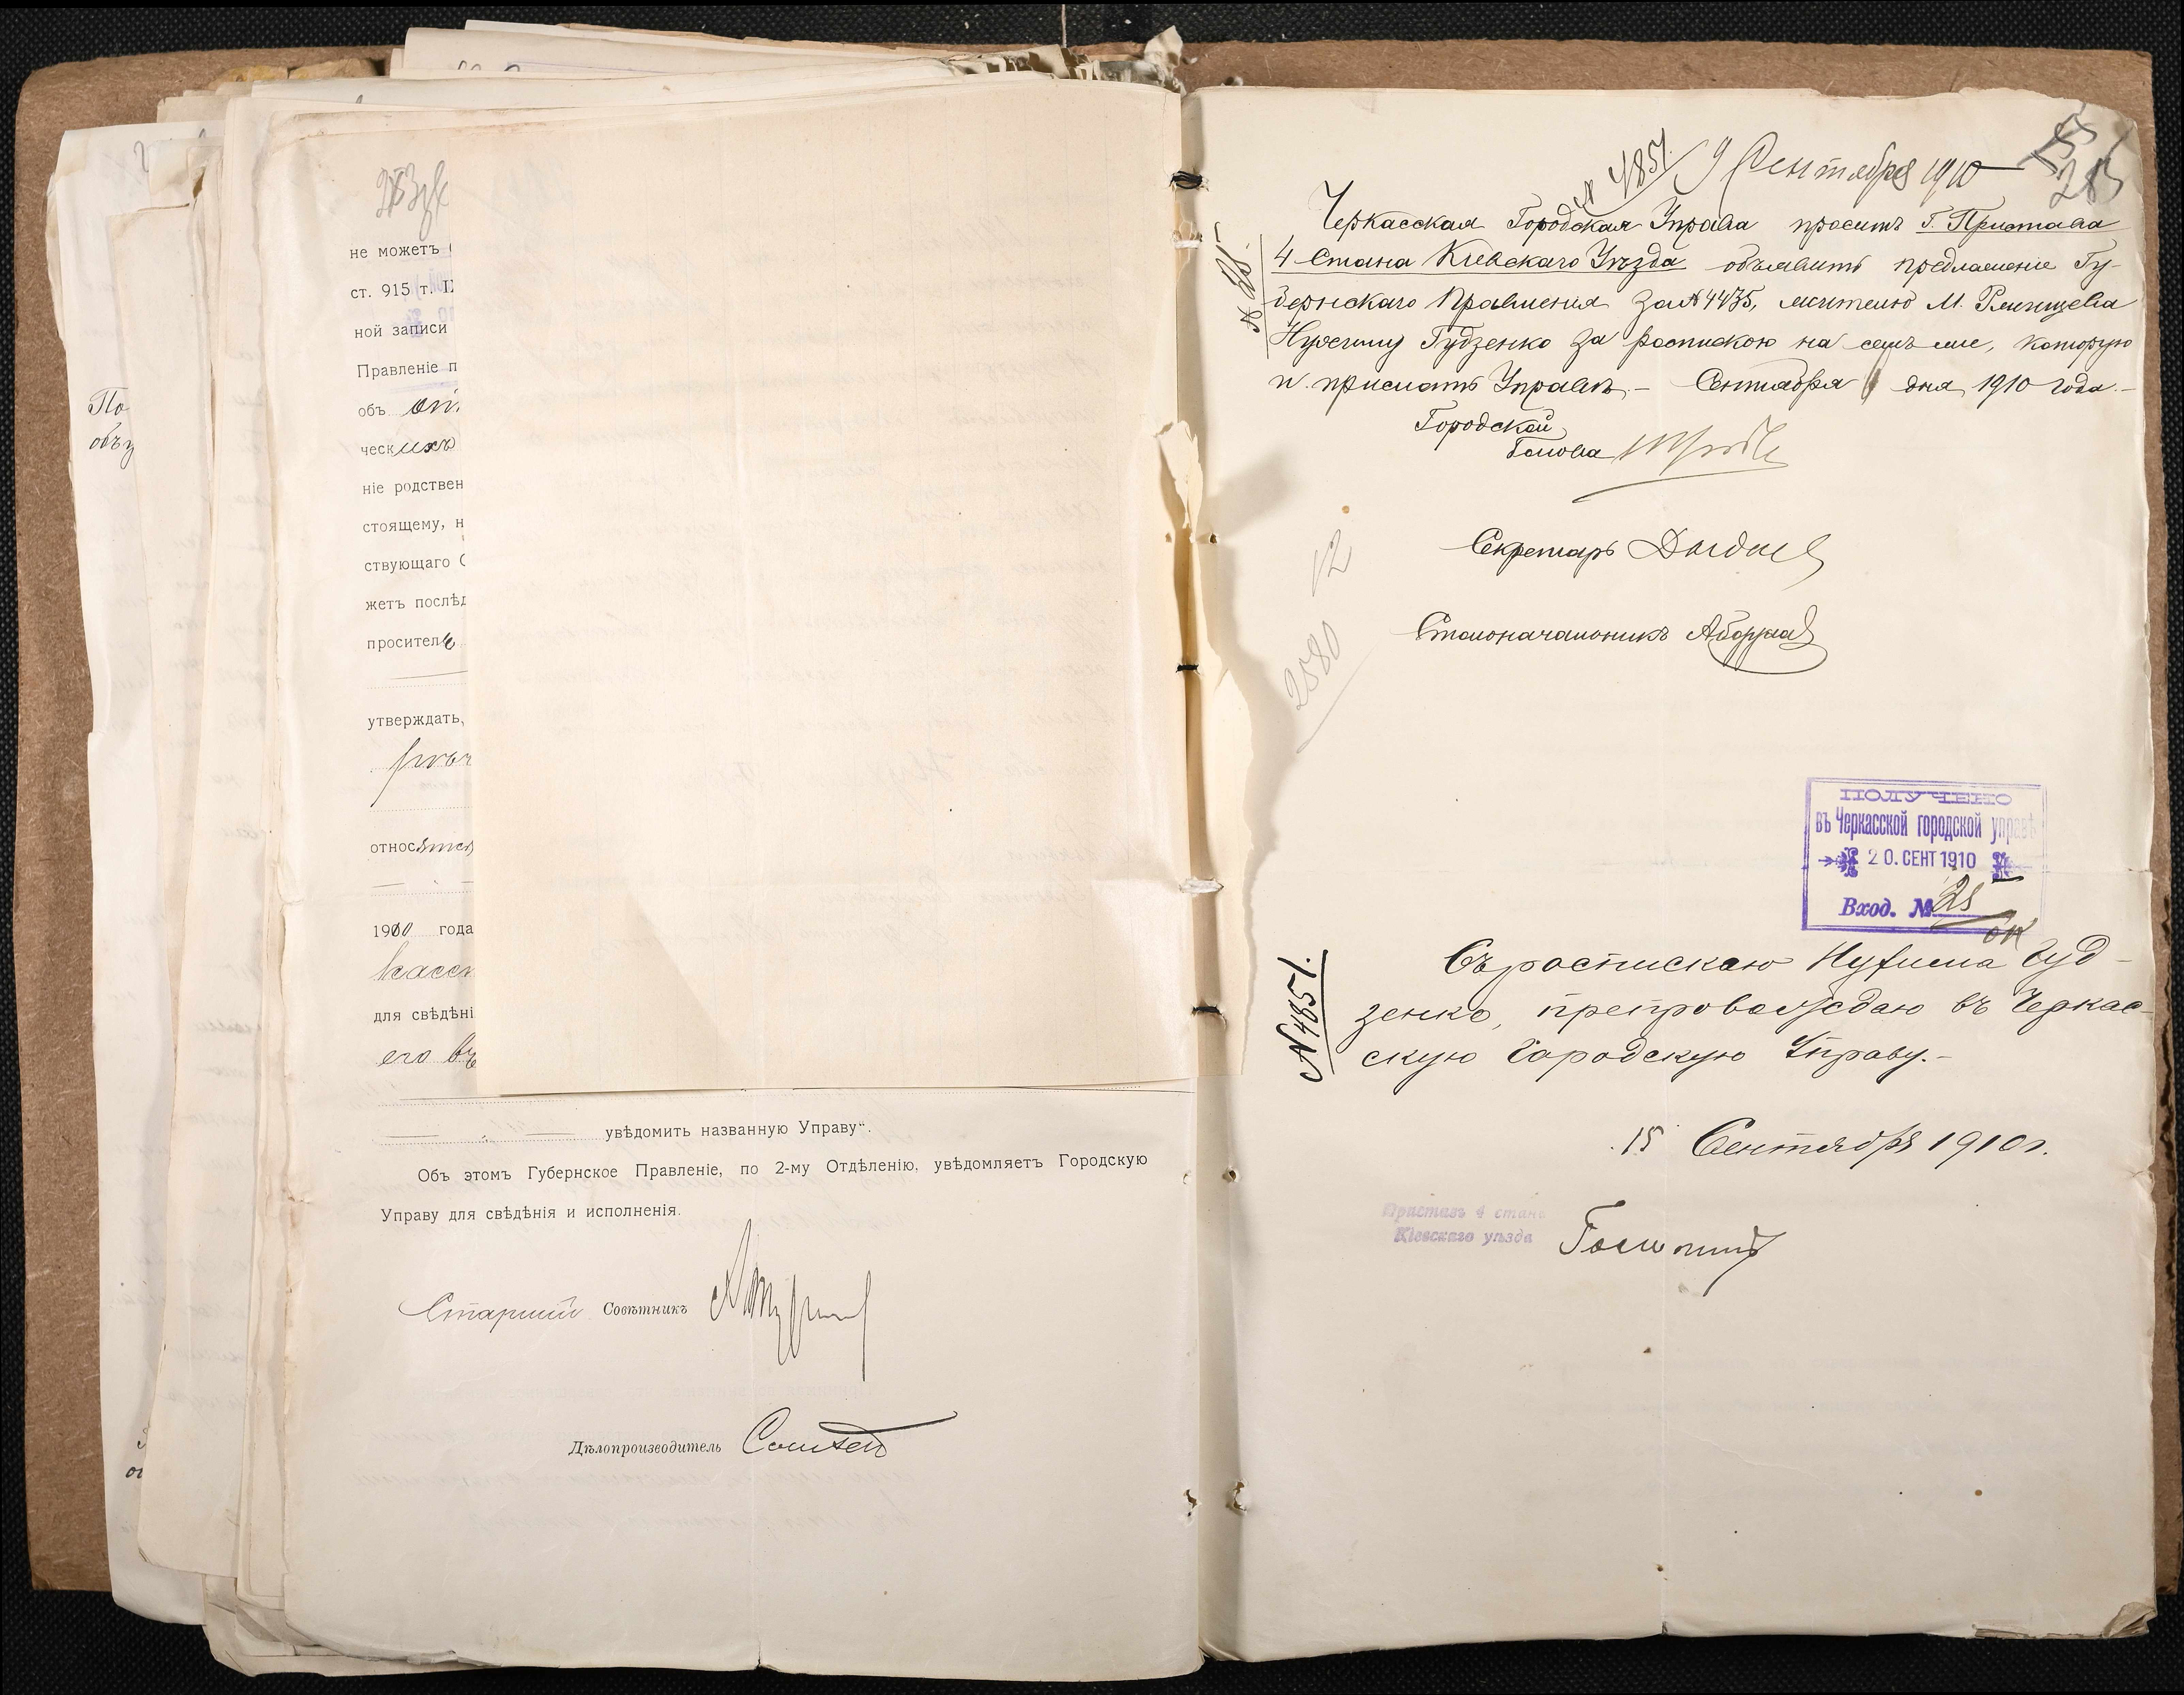 По
объ
не можетъ
ст. 915 т.
ной записи
Правленіе п
объ
ческихъ
ніе родствен
стоящему, н
ствующаго С
жетъ послѣд
просител
утверждать,
относ
1910 года
касс
для свѣдѣні
его въ
увѣдомить названную Управу“.
Объ этомъ Губернское Правленіе, по 2-му Отдѣленію, увѣдомляетъ Городскую
Управу для свѣдѣнія и исполненія.
Старшій Совѣтникъ
Дѣлопроизводитель
285
№ 4851. 9 Сентября 1910
Черкасская Городская Управа проситъ Г. Пристава
4 Стана Кіевскаго Уѣзда объявить предложеніе Гу-
бернскаго Правленія за № 4435, жителю М. Ржищева
Нухиму Гудзенко за роспискою на семъ же, которую
и прислать Управѣ.— Сентября дня 1910 года.—
Городской
Голова
Секретарь
Столоначальникъ
2580 12
ПОЛУЧЕНО
въ Черкасской городской управѣ
20. СЕНТ 1910
Вход. № 25
№ 4851.
Съ роспискою Нухима Гуд-
зенко, препровождаю въ Черкас-
скую Городскую Управу.—
15 Сентября 1910 г.
Приставъ 4 стана
Кіевскаго уѣзда